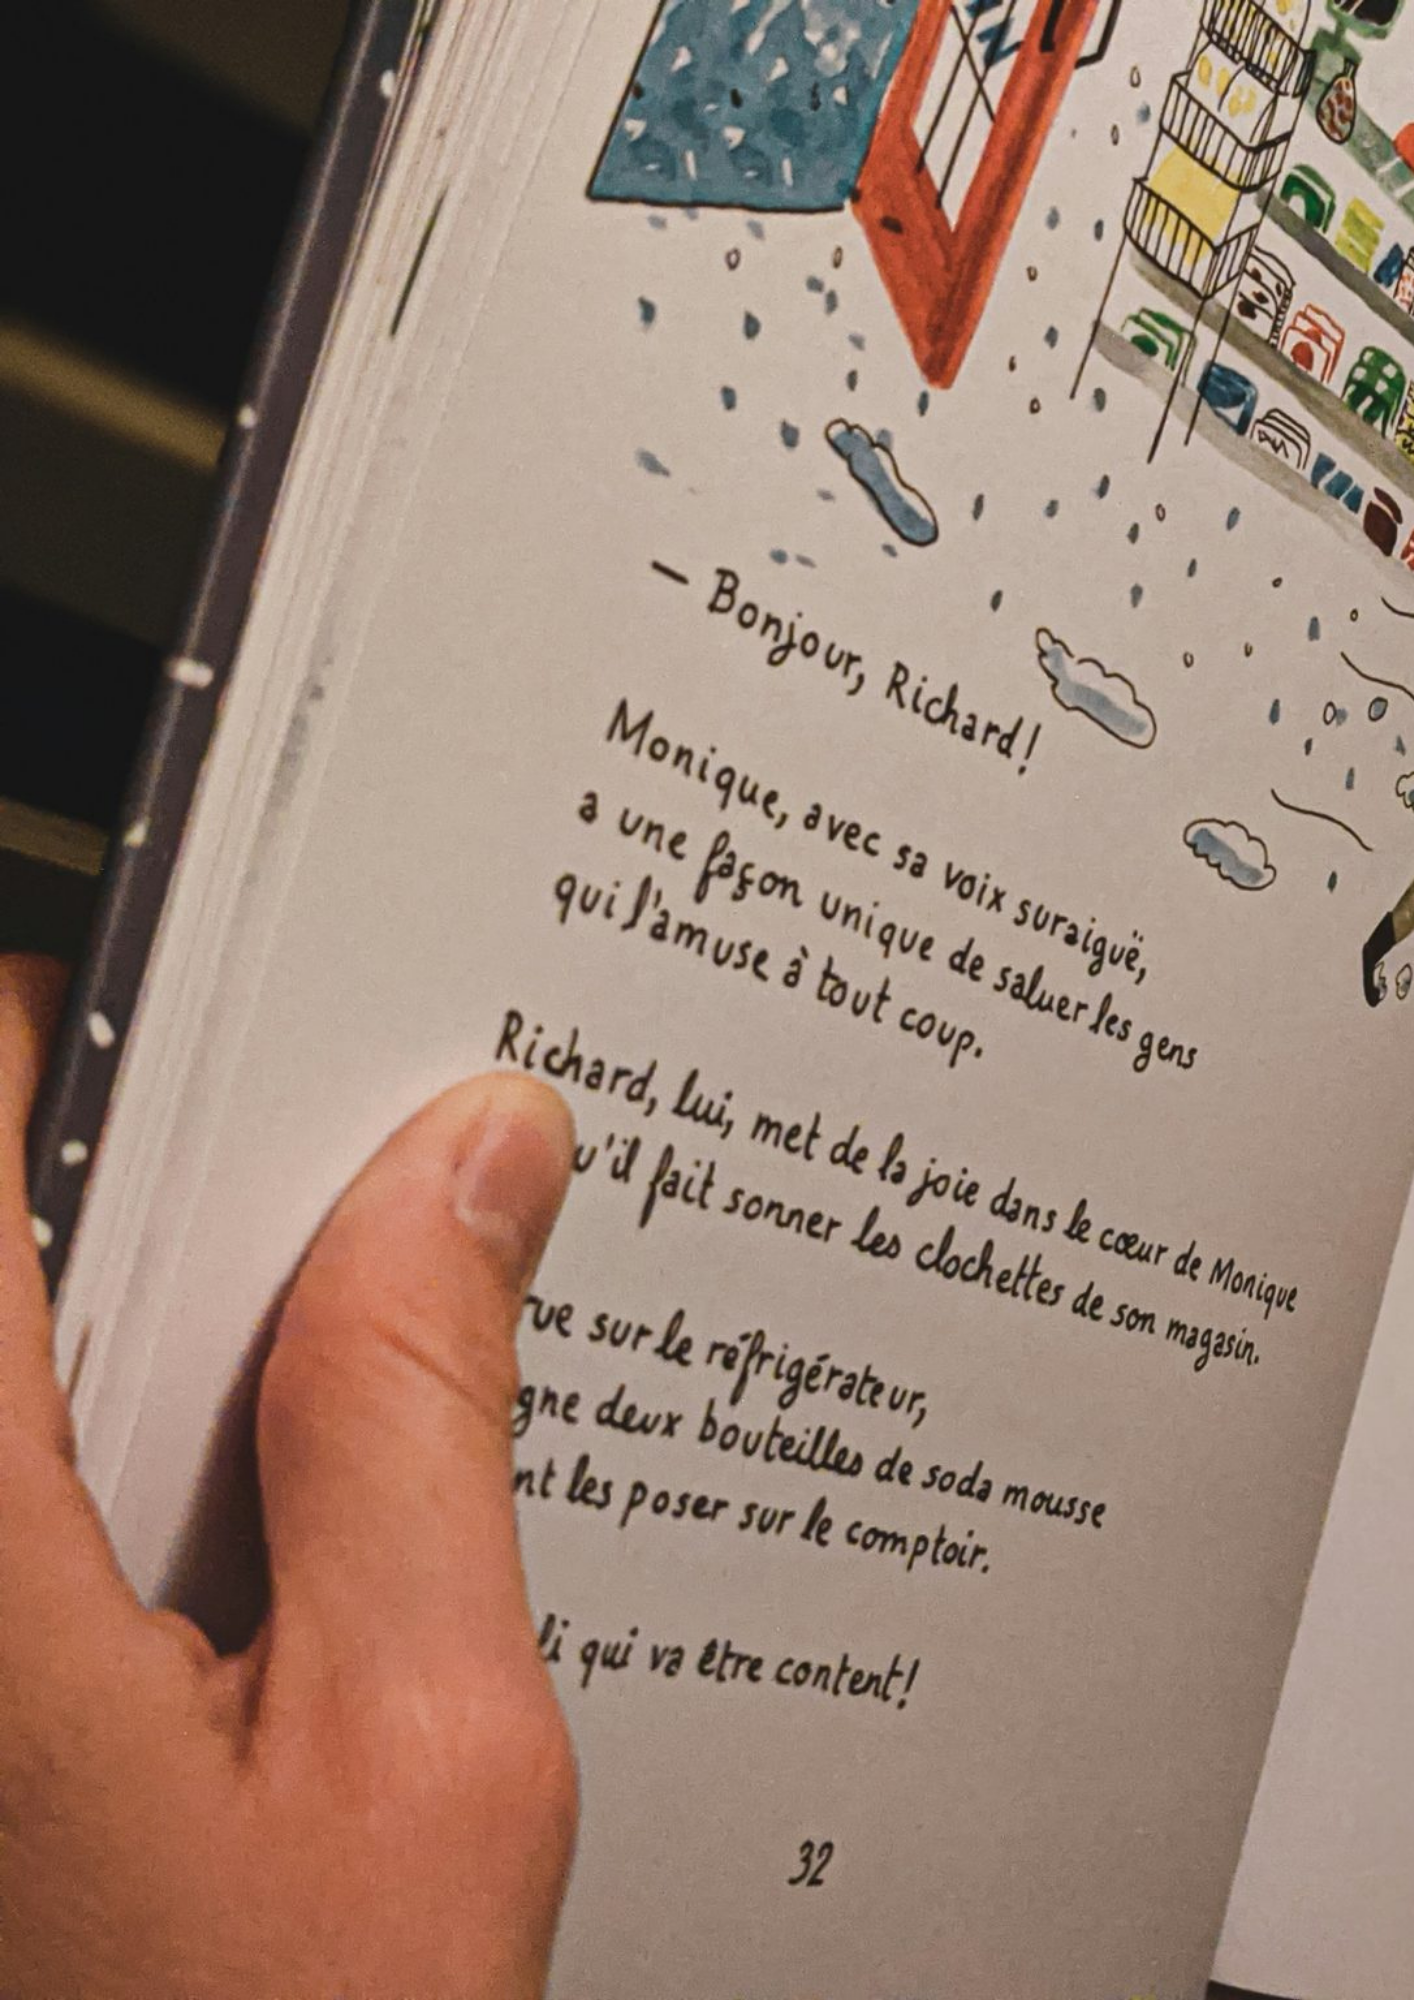 – Bonjour, Richard!
Monique, avec sa voix suraiguë,
a une façon unique de saluer les gens
qui l'amuse à tout coup.
Richard, lui, met de la joie dans le cœur de Monique
u'il fait sonner les clochettes de son magasin.
rue sur le réfrigérateur,
gne deux bouteilles de soda mousse
nt les poser sur le comptoir.
li qui va être content!
32